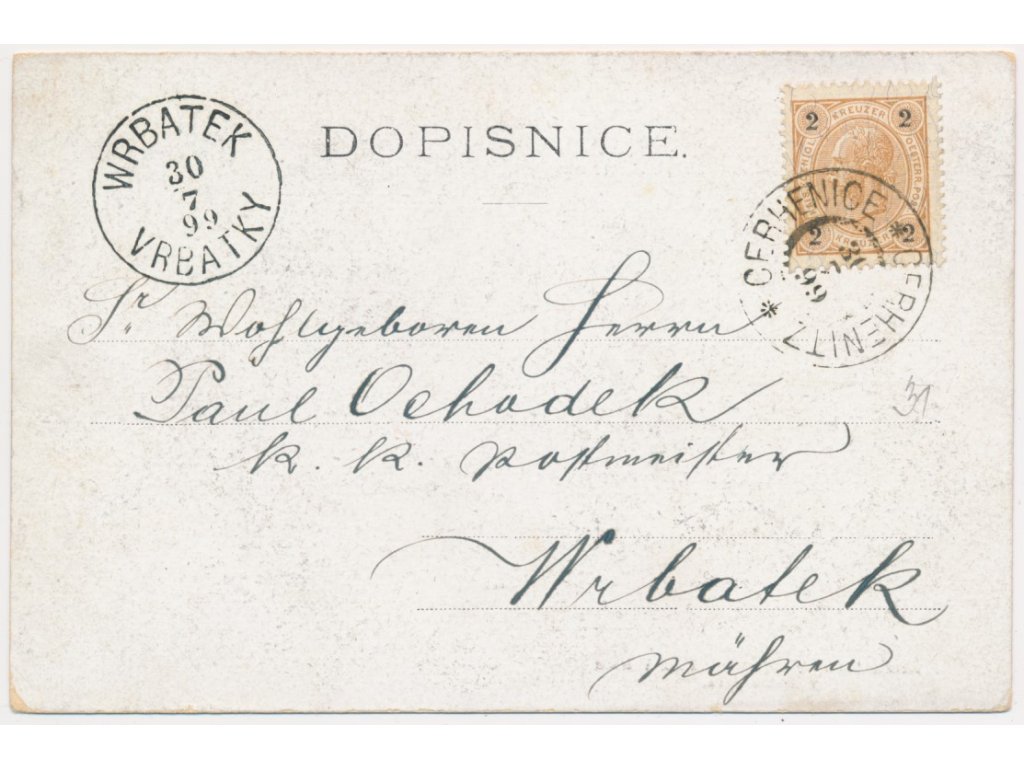 WRBATEK
30
7
99
VRBATKY
DOPISNICE.
2 KREUZER 2
2 KREUZER 2
CERHENICE * CERHENITZ *
99
Sr. Wohlgeboren Herrn
Paul Ochodek
31.
k. k. Postmeister
Wrbatek
Mähren